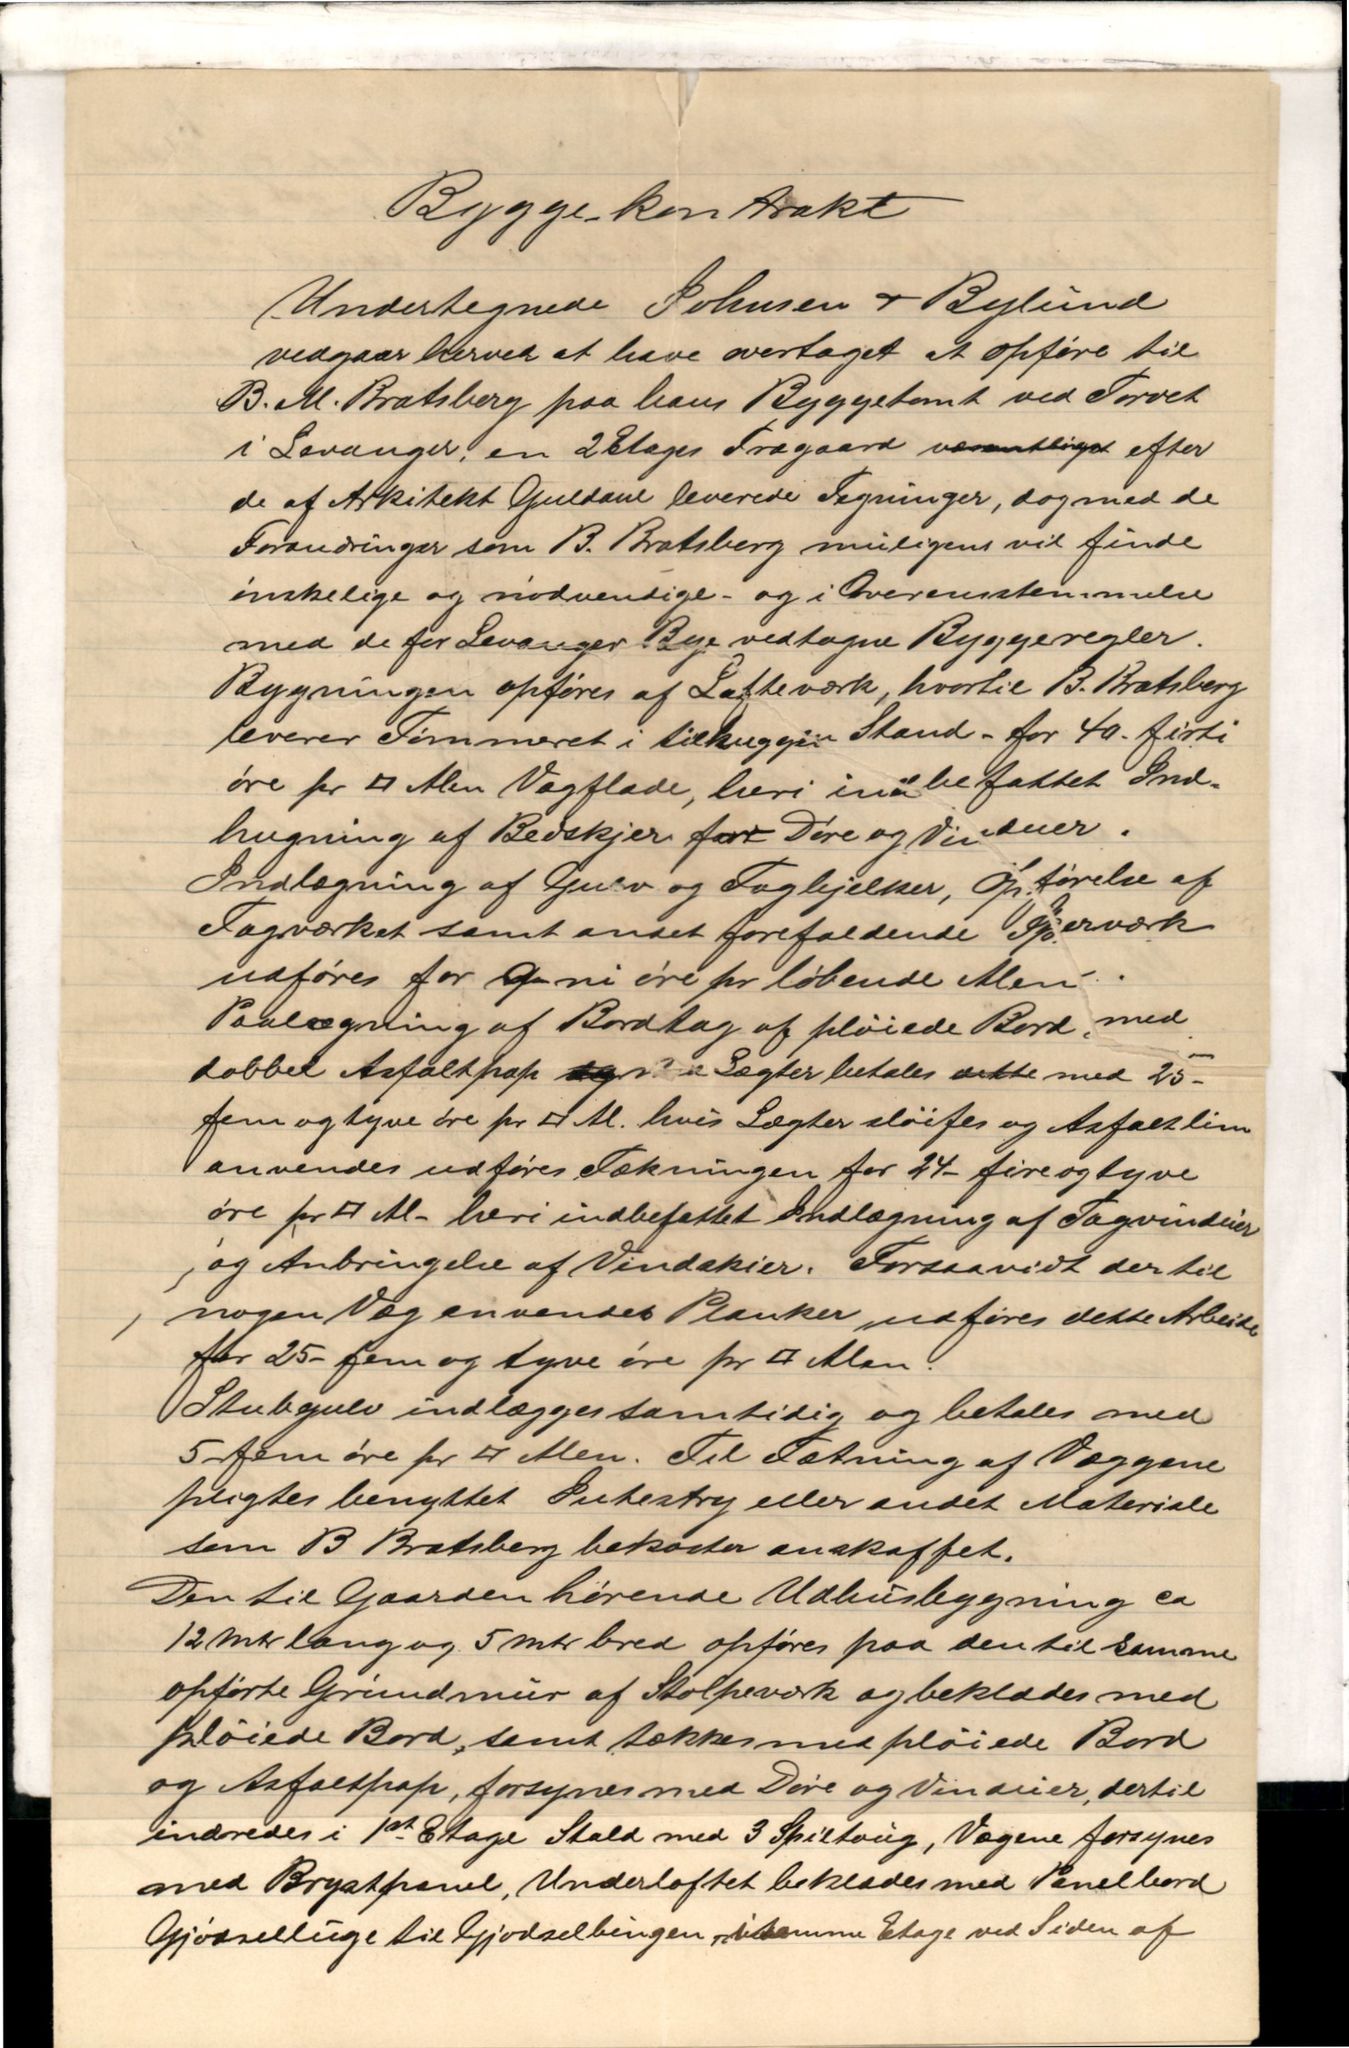 Bygge-kontrakt
Undertegnede Johnsen & Bylund
vedgaar herved at have overtaget at opföre til
B. M. Bratsberg paa hans Byggetomt ved Torvet
i Levanger, en 2 Etages Trægaard væsentligst efter
de af Arkitekt Guldahl leverede Tegninger, dog med de
Forandringer som B. Bratsberg muligens vil finde
önskelige og nödvendige - og i Overensstemmelse
med de for Levanger Bye vedtagne Byggeregler.
Bygningen opföres af Lafteværk, hvortil B. Bratsberg
leverer Tömmeret i tilhuggen Stand - for 40 - firti
öre pr □ Alen Vægflade, heri indbefattet Ind-
hugning af Bedskjer for Döre og Vinduer.
Indlægning af Gulv og Tagbjelker, Opförelse af
Tagværket samt andet forefaldende
udföres for 9 - ni öre pr löbende Alen.
Paalægning af Bordtag af plöiede Bord, med
dobbel Asfaltpap Lægter betales dette med 25 -
fem og tyve öre pr □ Al. hvis Lægter slöifes og Asfaltlim
anvendes udföres Tækningen for 24 - fire og tyve
öre pr □ Al - heri indbefattet Indlægning af Tagvinduer
og Anbringelse af Vindskier. Forsaavidt der til
nogen Væg anvendes Planker, udföres dette Arbeide
for 25 - fem og tyve öre pr □ Alen.
Stubgulv indlægges samtidig og betales med
5 - fem öre pr □ Alen. Til Tætning af Væggene
pligtes benyttet Jutestry eller andet Materiale
som B Bratsberg bekoster anskaffet.
Den til Gaarden hörende Udhusbygning ca
12 mtr lang og 5 mtr bred opföres paa den til samme
opförte Grundmur af Stolpeværk og beklædes med
plöiede Bord, samt tækkes med plöiede Bord
og Asfaltpap, forsynes med Döre og Vinduer, dertil
indredes i 1st Etage Stald med 3 Spiltoug, Vægene forsynes
med Brystpanel, Underloftet beklædes med Panelbord
Gjödselluge til Gjödselbingen, i samme Etage ved Siden af